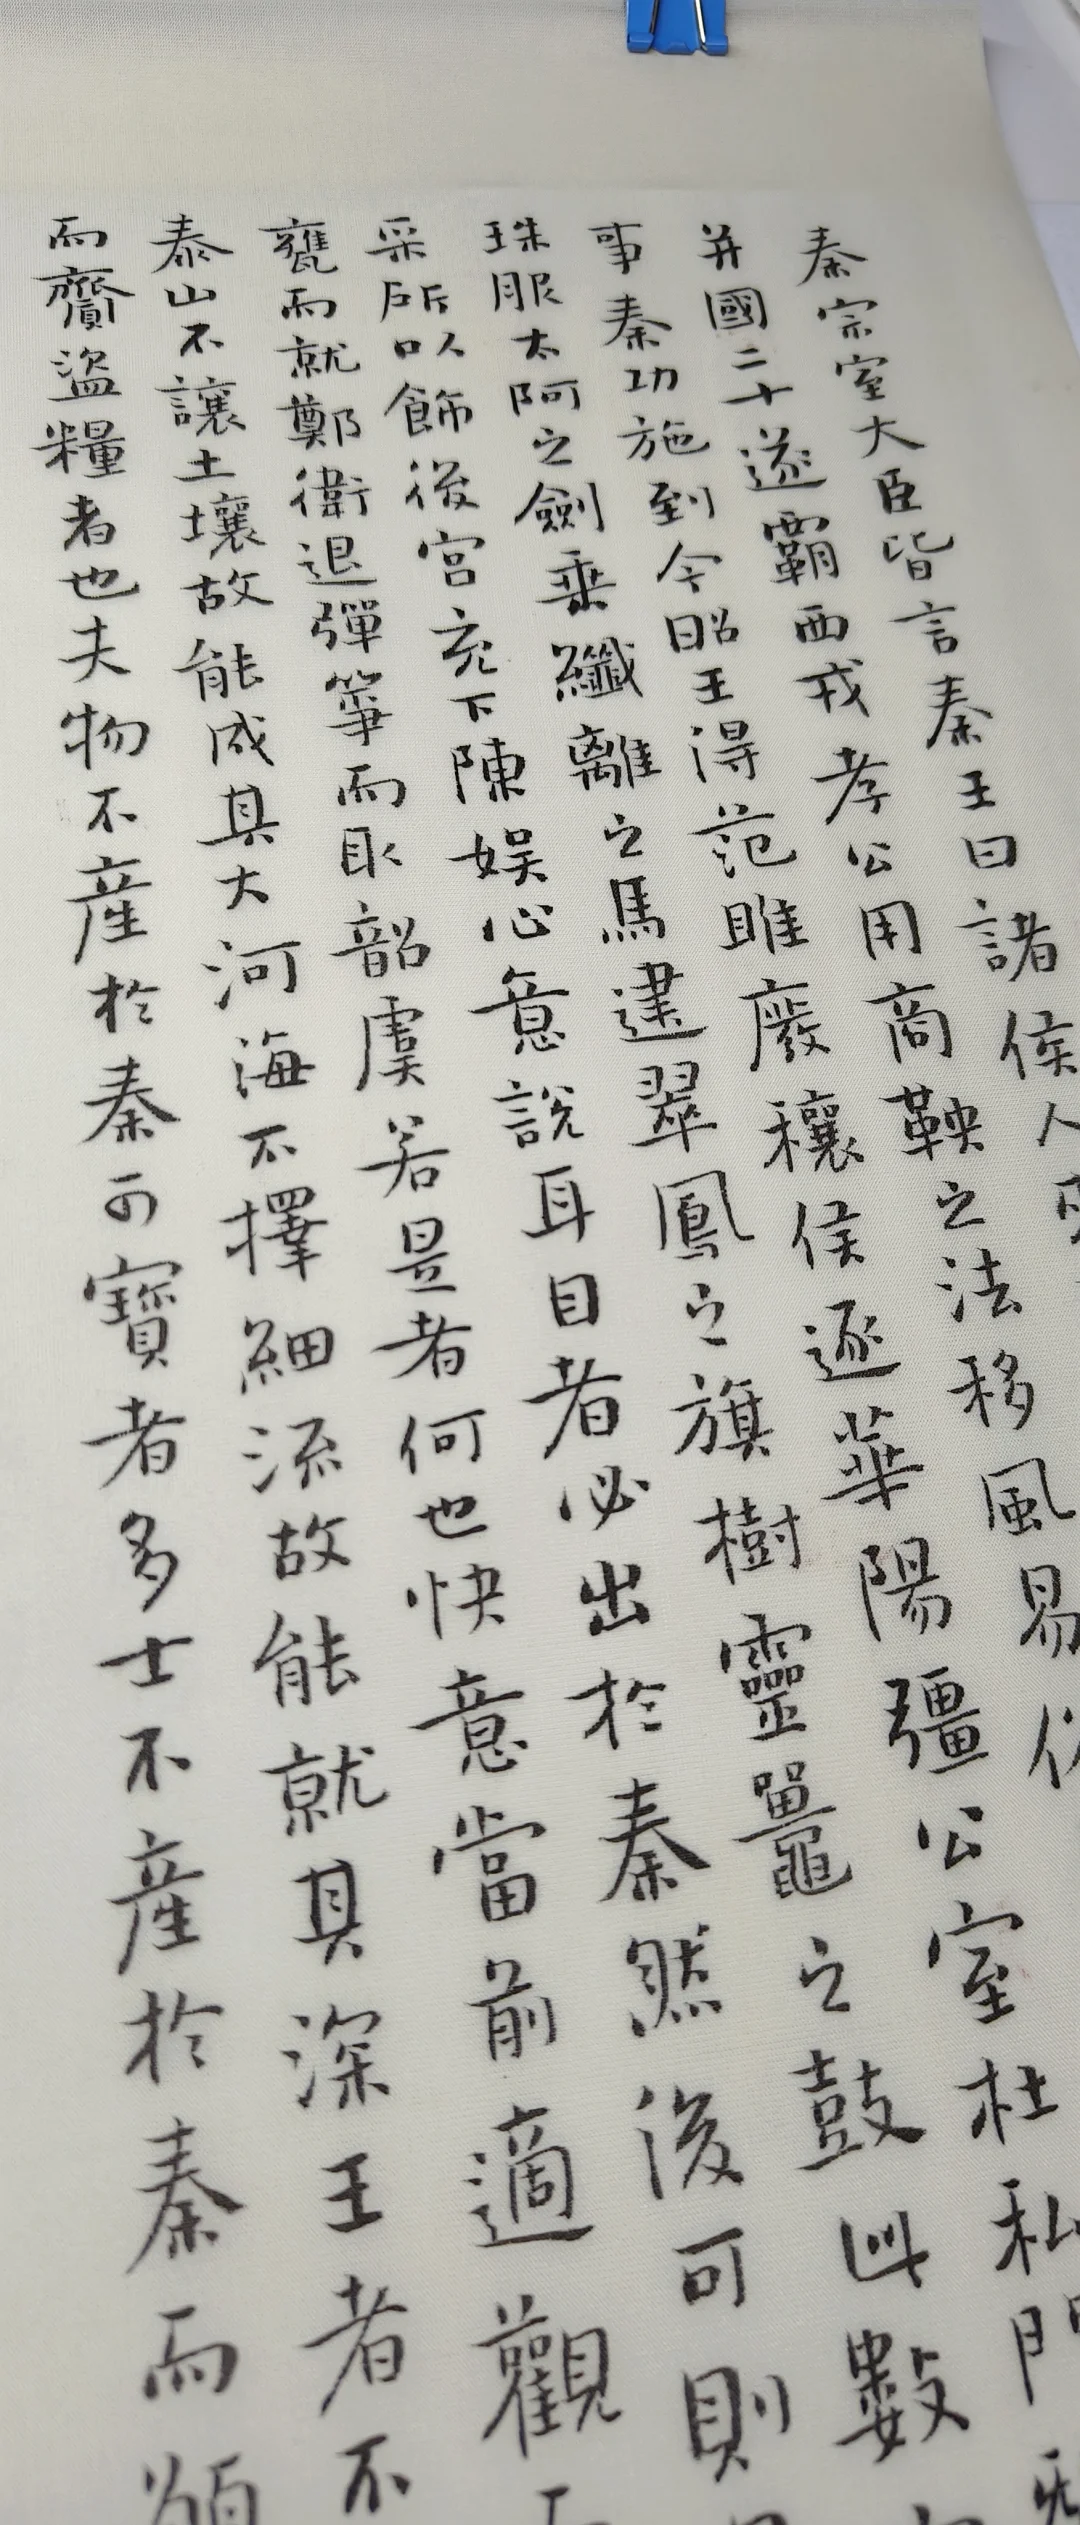 秦宗室大臣皆言秦王曰諸侯人
并國二十遂霸西戎孝公用商鞅之法移風易
事秦功施到今昭王得范雎廢穰侯逐華陽彊公室杜私門
珠服太阿之劍乘纖離之馬建翠鳳之旗樹靈鼉之鼓此數
采所以飾後宮充下陳娛心意說耳目者必出於秦然後可則
甕而就鄭衛退彈箏而取韶虞若是者何也快意當前適觀
泰山不讓土壤故能成其大河海不擇細流故能就其深王者不
而齎盜糧者也夫物不產於秦可寶者多士不產於秦而願